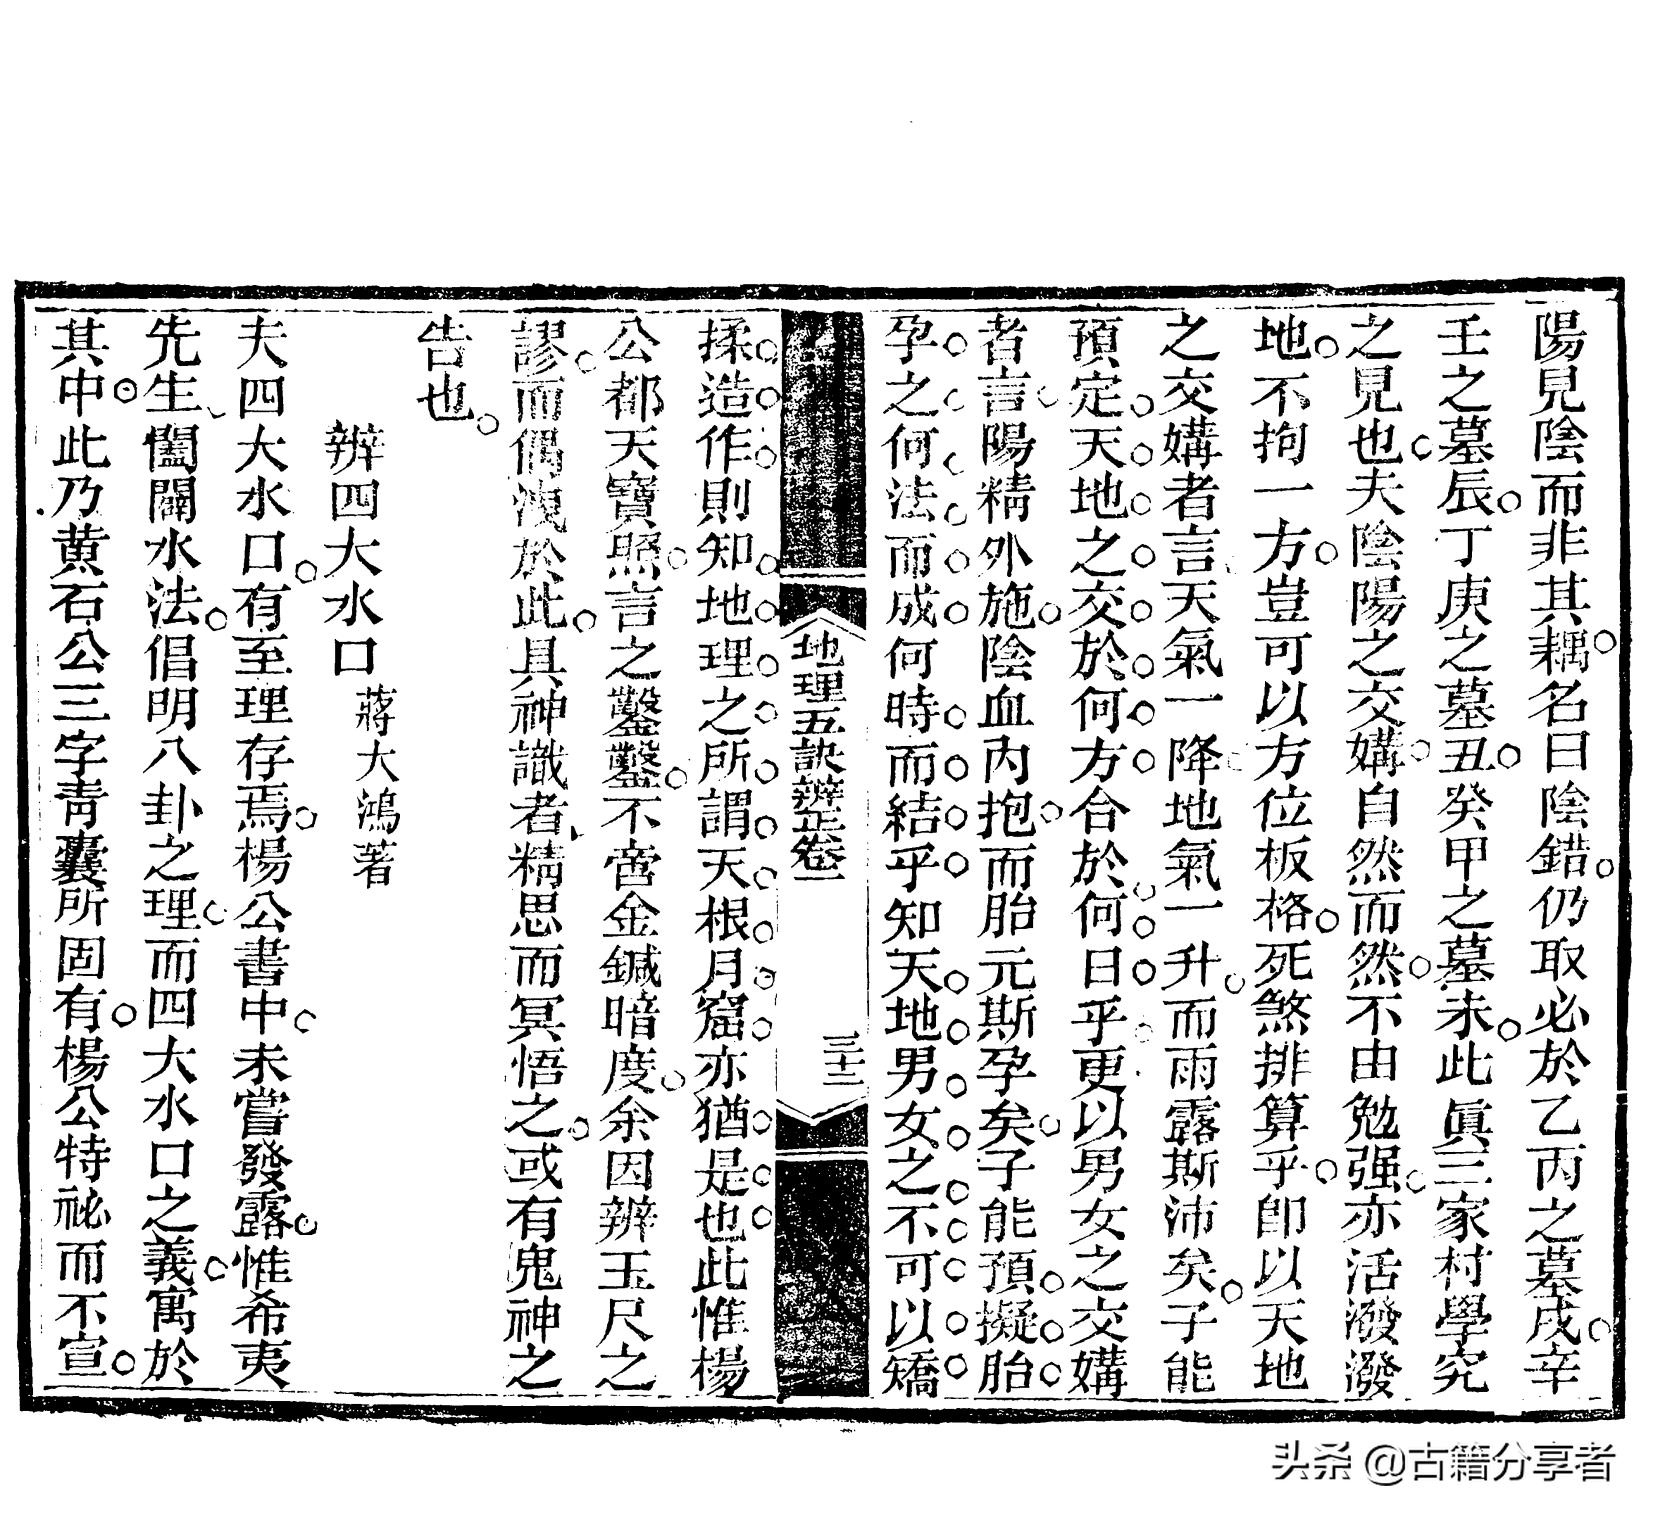 陽見陰而非其耦名曰陰錯仍取必於乙丙之墓戌辛
壬之墓辰丁庚之墓丑癸甲之墓未此眞三家村學究
之見也夫陰陽之交媾自然而然不由勉强亦活潑潑
地不拘一方豈可以方位板格死煞排算乎卽以天地
之交媾者言天氣一降地氣一升而雨露斯沛矣子能
預定天地之交於何方合於何日乎更以男女之交媾
者言陽精外施陰血內抱而胎元斯孕矣子能預擬胎
孕之何法而成何時而結乎知天地男女之不可以矯
地理五訣辨正卷一
三十二
揉造作則知地理之所謂天根月窟亦猶是也此惟楊
公都天寶照言之鑿鑿不啻金鍼暗度余因辨玉尺之
謬而偶洩於此具神識者精思而冥悟之或有鬼神之
告也
辨四大水口 蔣大鴻著
夫四大水口有至理存焉楊公書中未嘗發露惟希夷
先生闔闢水法倡明八卦之理而四大水口之義寓於
其中此乃黃石公三字靑囊所固有楊公特祕而不宣
头条 @古籍分享者